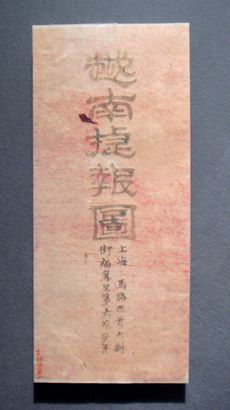 越南捷報圖
上海二馬路西首大新
街福□里第六家發售